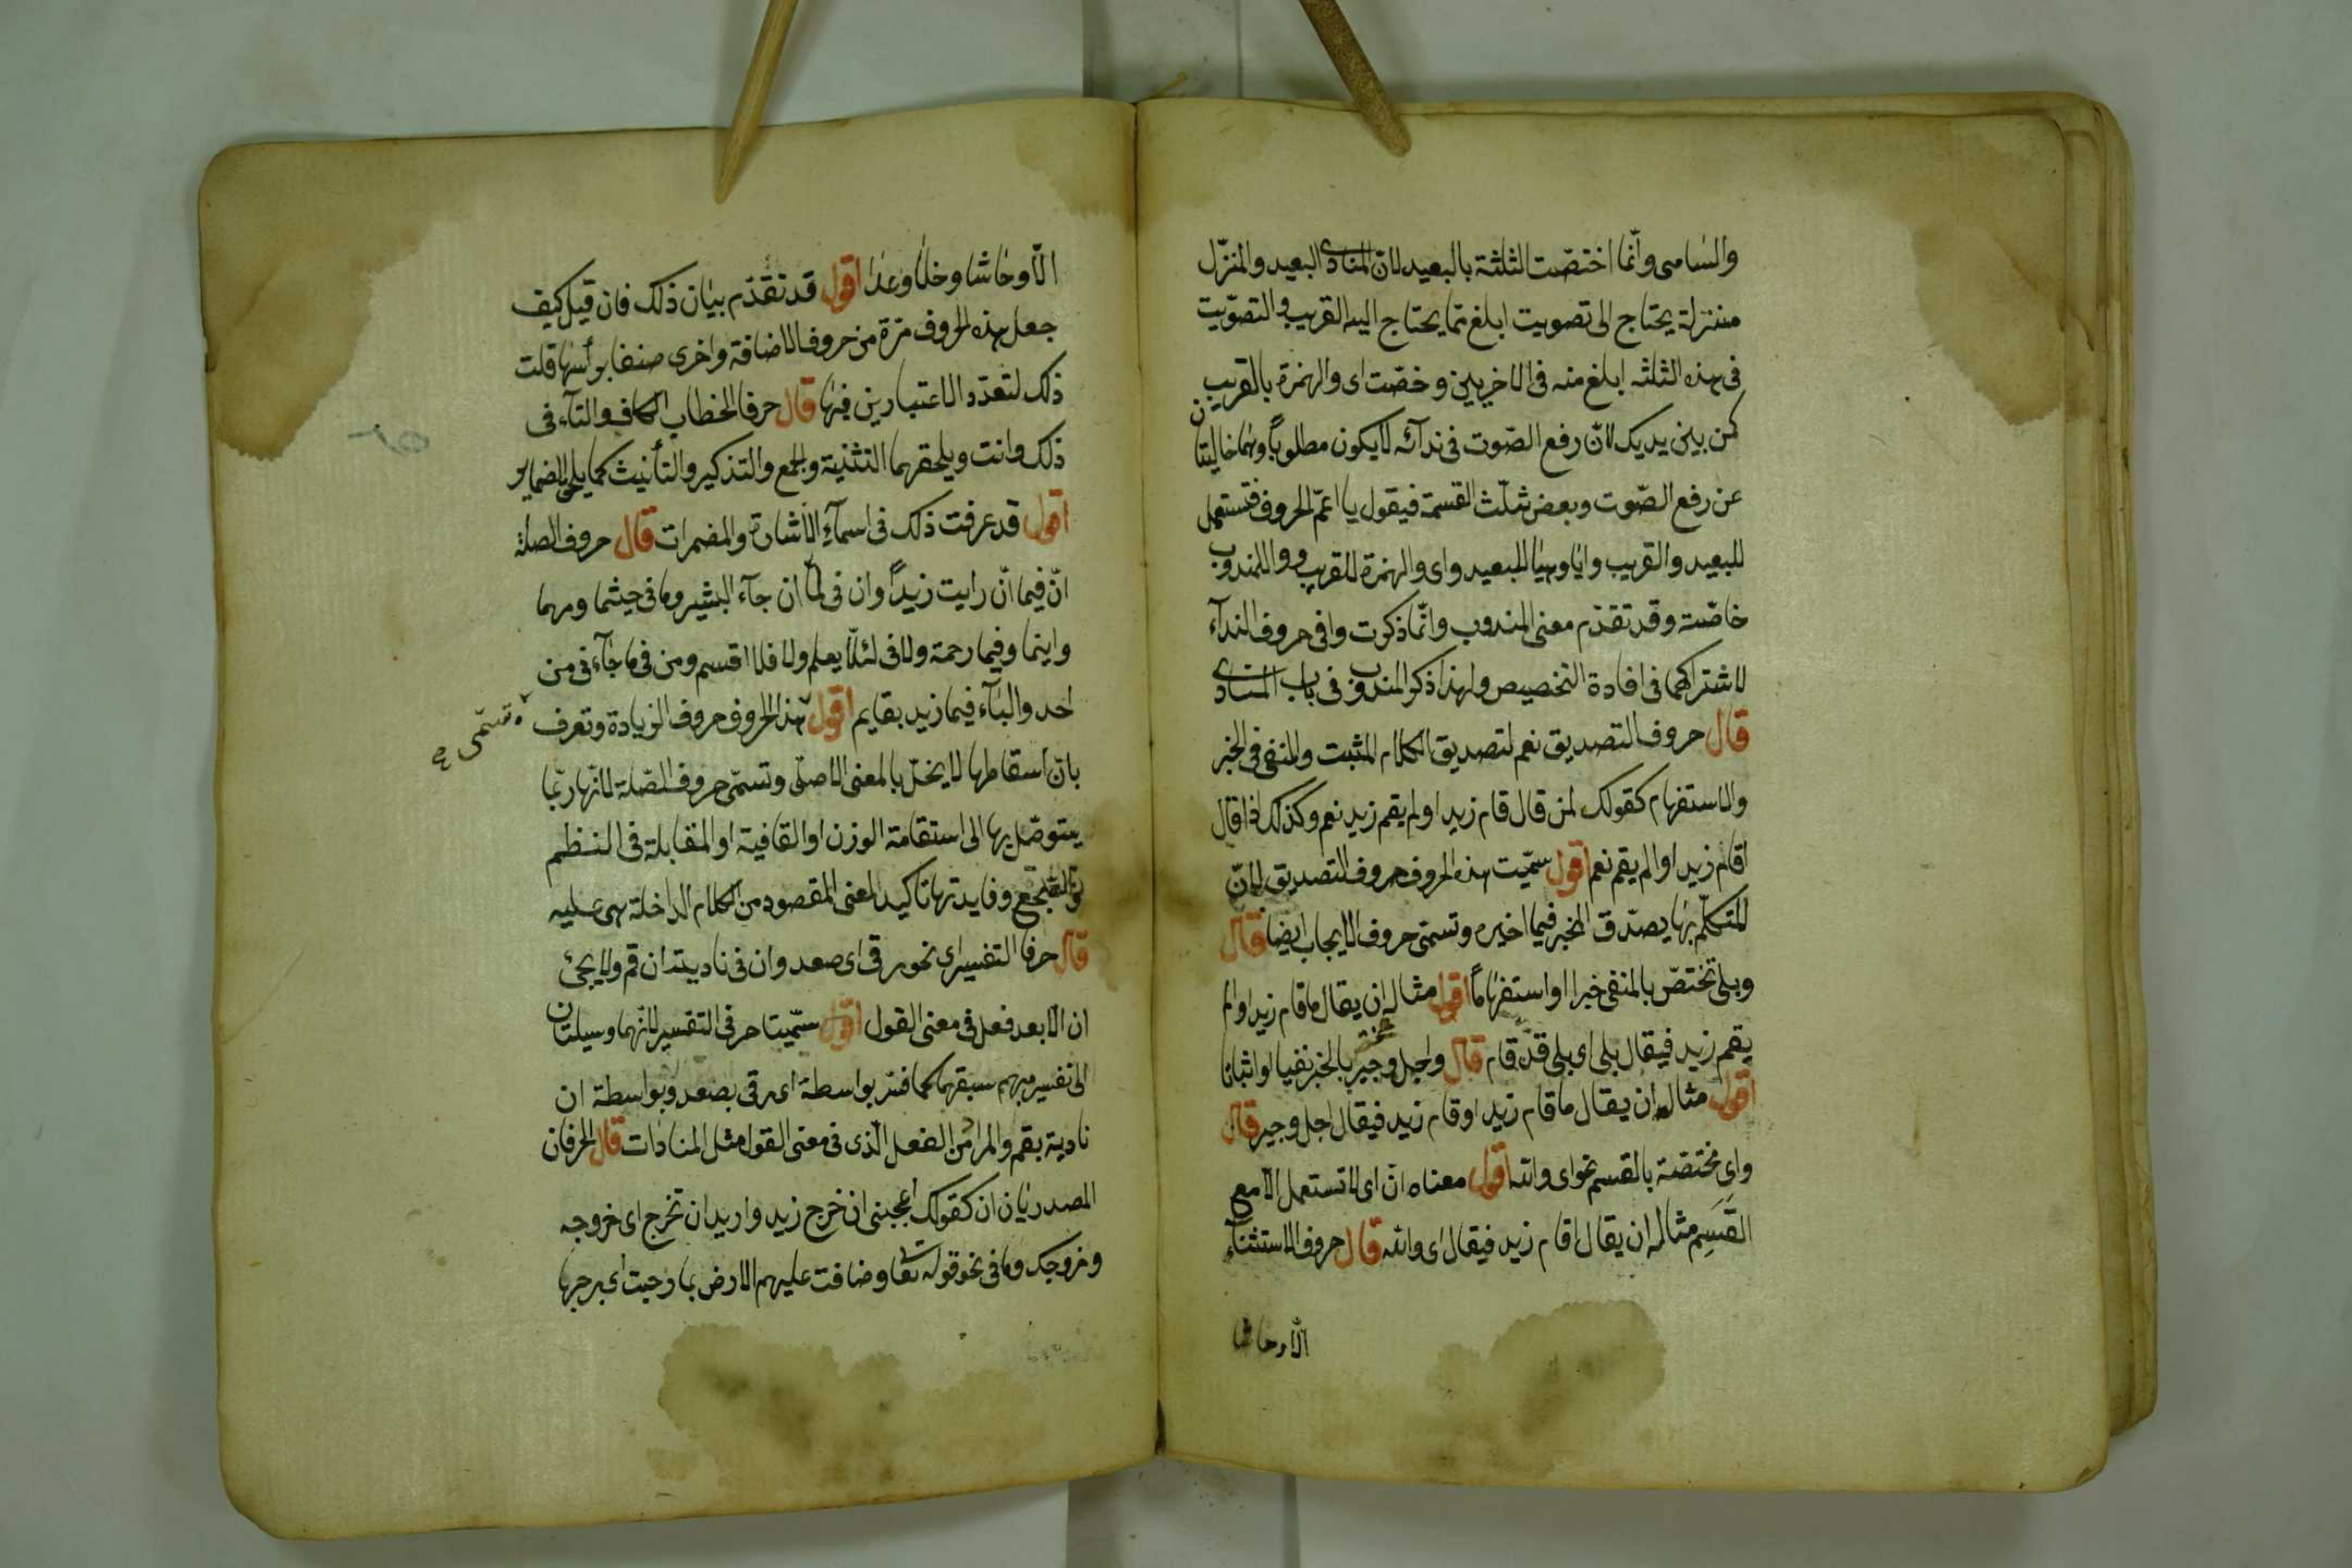 والساهى وانّما اختصّت الثلثة بالبعيد لان المنادى البعيد والمنزّل
منزلة يحتاج الى تصويت ابلغ ممّا يحتاج اليه القريب والتصويت
فى هذه الثلثه ابلغ منه فى الاخريين وخصّت اى والهمزة بالقريب
كمن بين يديك لانّ رفع الصّوت فى ندآئه لا يكون مطلوباً وهما خاليتان
عن رفع الصّوت وبعض ثلّث القسمة فيقول يا اعمّ الحروف فتستعمل
للبعيد والقريب وايا وهيا للبعيد واى والهمزة للقريب ووا للمندوب
خاصّة وقد تقدّم معنى المندوب وانّما ذكرت وا فى حروف الندآء
لاشتراكهما فى افادة التخصيص ولهذا ذكر المندوب فى باب المنادى
قال حروف التصديق نعم لتصديق الكلام المثبت والمنفى فى الخبر
والاستفهام كقولك لمن قال قام زيد او لم يقم زيد نعم وكذلك اذا قال
اقام زيد او الم يقم نعم اقول سمّيت هذه الحروف حروف التصديق لانّ
المتكلّم بها يصدّق المخبر فيما اخبره وتسمّى حروف الايجاب ايضا قال
وبلى تختصّ بالمنفى خبرا او استفهاماً اقول مثاله ان يقال ما قام زيد او الم
يقم زيد فيقال بلى اى بلى قد قام قال واجل وجير بالخبر نفيا او اثباتا
اقول مثاله ان يقال ما قام زيد او قام زيد فيقال اجل وجير قال
واى مختصّة بالقسم نحو اى والله اقول معناه انّ اى لا تستعمل الّا مع
القَسَمِ مثاله ان يقال اقام زيد فيقال اى والله قال حروف الاستثنآء
الّا وحاشا
الّا وحاشا وخلا وعدا اقول قد تقدّم بيان ذلك فان قيل كيف
جعل هذه الحروف مرّة من حروف الاضافة واخرى صنفا برأسها قلت
ذلك لتعدّد الاعتبارين فيها قال حرفا الخطاب الكاف والتآء فى
ذلك وانت ويلحقهما التثنية والجمع والتذكير والتأنيث كما يلحق الضماير
اقول قد عرفت ذلك فى اسمآءِ الاشارة والمضمرات قال حروف الصلة
انّ فيما انّ رايت زيداً وان فى لمّا ان جآء البشير وما فى حيثما ومهما
واينما وفيما رحمة ولا فى لئلّا يعلم ولا فلا اقسم ومن فى ما جآءنى من
احد والبآء فيما زيد بقايم اقول هذه الحروف حروف الزيادة وتعرف
تسمّى
بان اسقاطها لا يخلّ بالمعنى الاصلى وتسمّى حروف الصّلة لانّها ربّما
يتوصّل بها الى استقامة الوزن او القافية او المقابلة فى النظم
والسّجع وفايدتها تاكيد المعنى المقصود من الكلام الداخلة هى عليه
قال حرفا التفسير اى نحو رقى اى صعد وان فى ناديته ان قم ولا يجئ
ان الّا بعد فعل فى معنى القول اقول سمّيتا حرفى التفسير لانّهما وسيلتان
الى تفسير مبهم سبقهما كما فسّر بواسطة اى رقى بصعد وبواسطة ان
نادية بقم والمراد من الفعل الّذى فى معنى القول مثل المنادات قال الحرفان
المصدريان ان كقولك اعجبنى ان خرج زيد واريد ان تخرج اى خروجه
وخروجك وما فى نحو قوله تعا وضاقت عليهم الارض بما رحبت اى برحبها